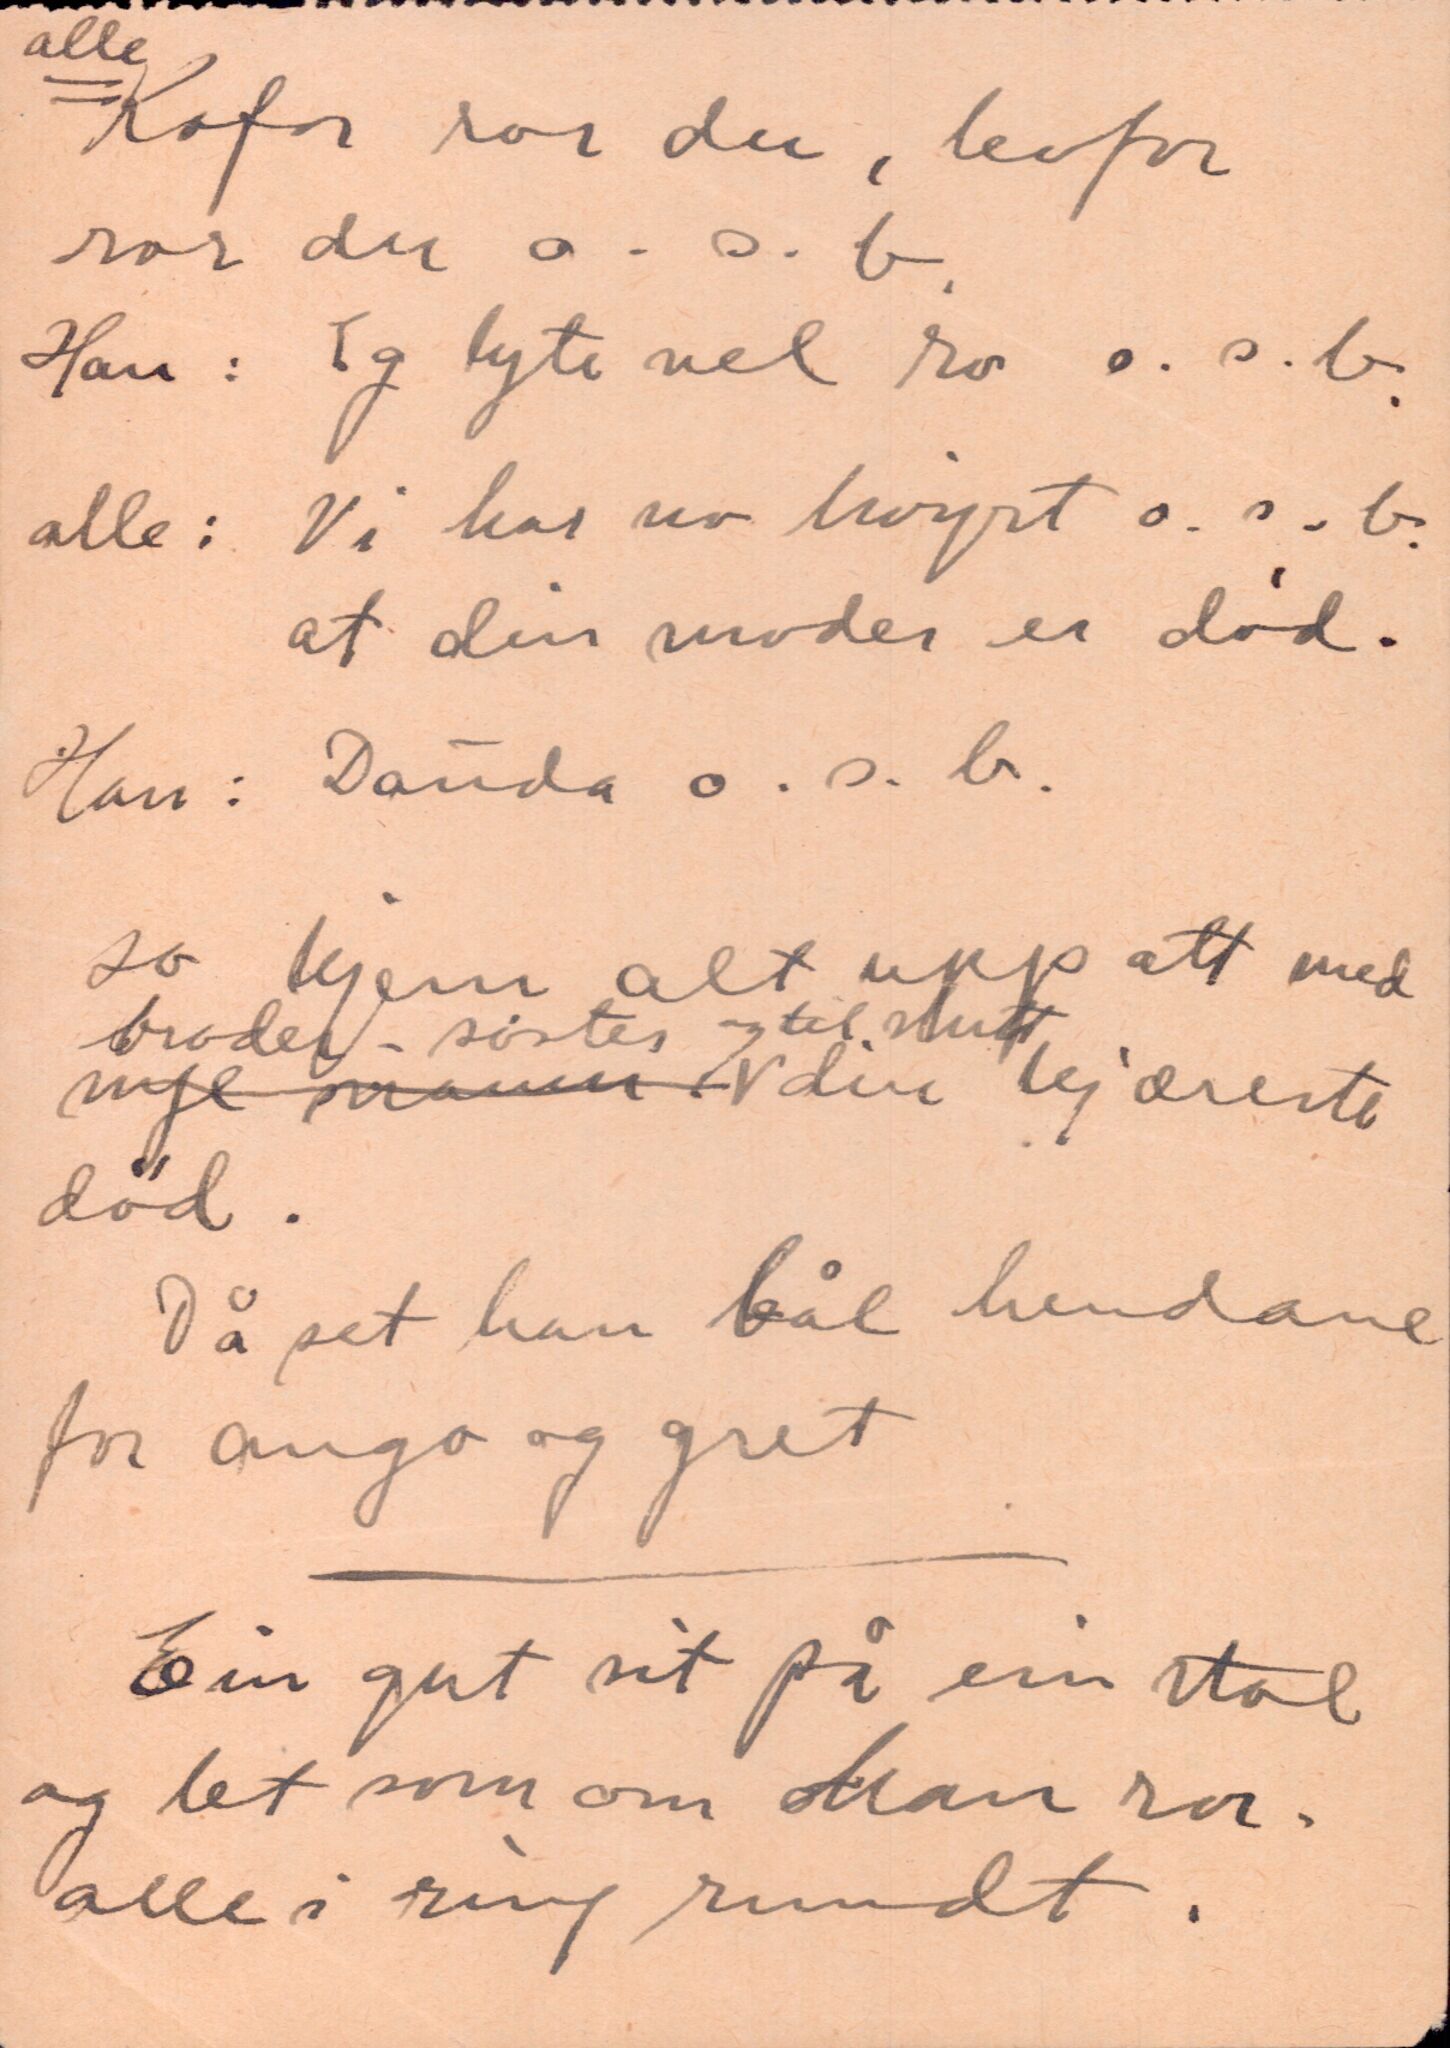 alle
Kofor ror du, kofor
ror du o. s. b.
Han: Eg lyte vel ro o. s. b.
alle: Vi har no höyrt o. s. b.
at din moder er död.
Han: Dauda o. s. b.
so kjem alt upp att med
broder - söster og til slutt
mye din kjæreste
död.
Då set han bål hendane
for augo og gret
Ein gut sit på ein stol
og let som om han ror.
alle i ring rundt.